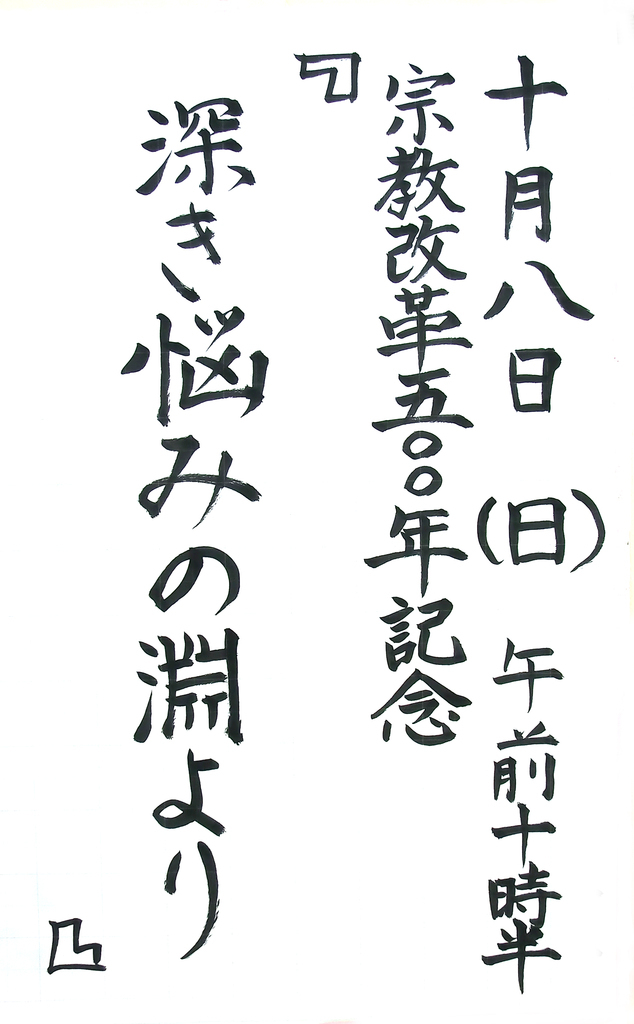 十月八日(日) 午前十時半
宗教改革五〇〇年記念
『深き悩みの淵より』